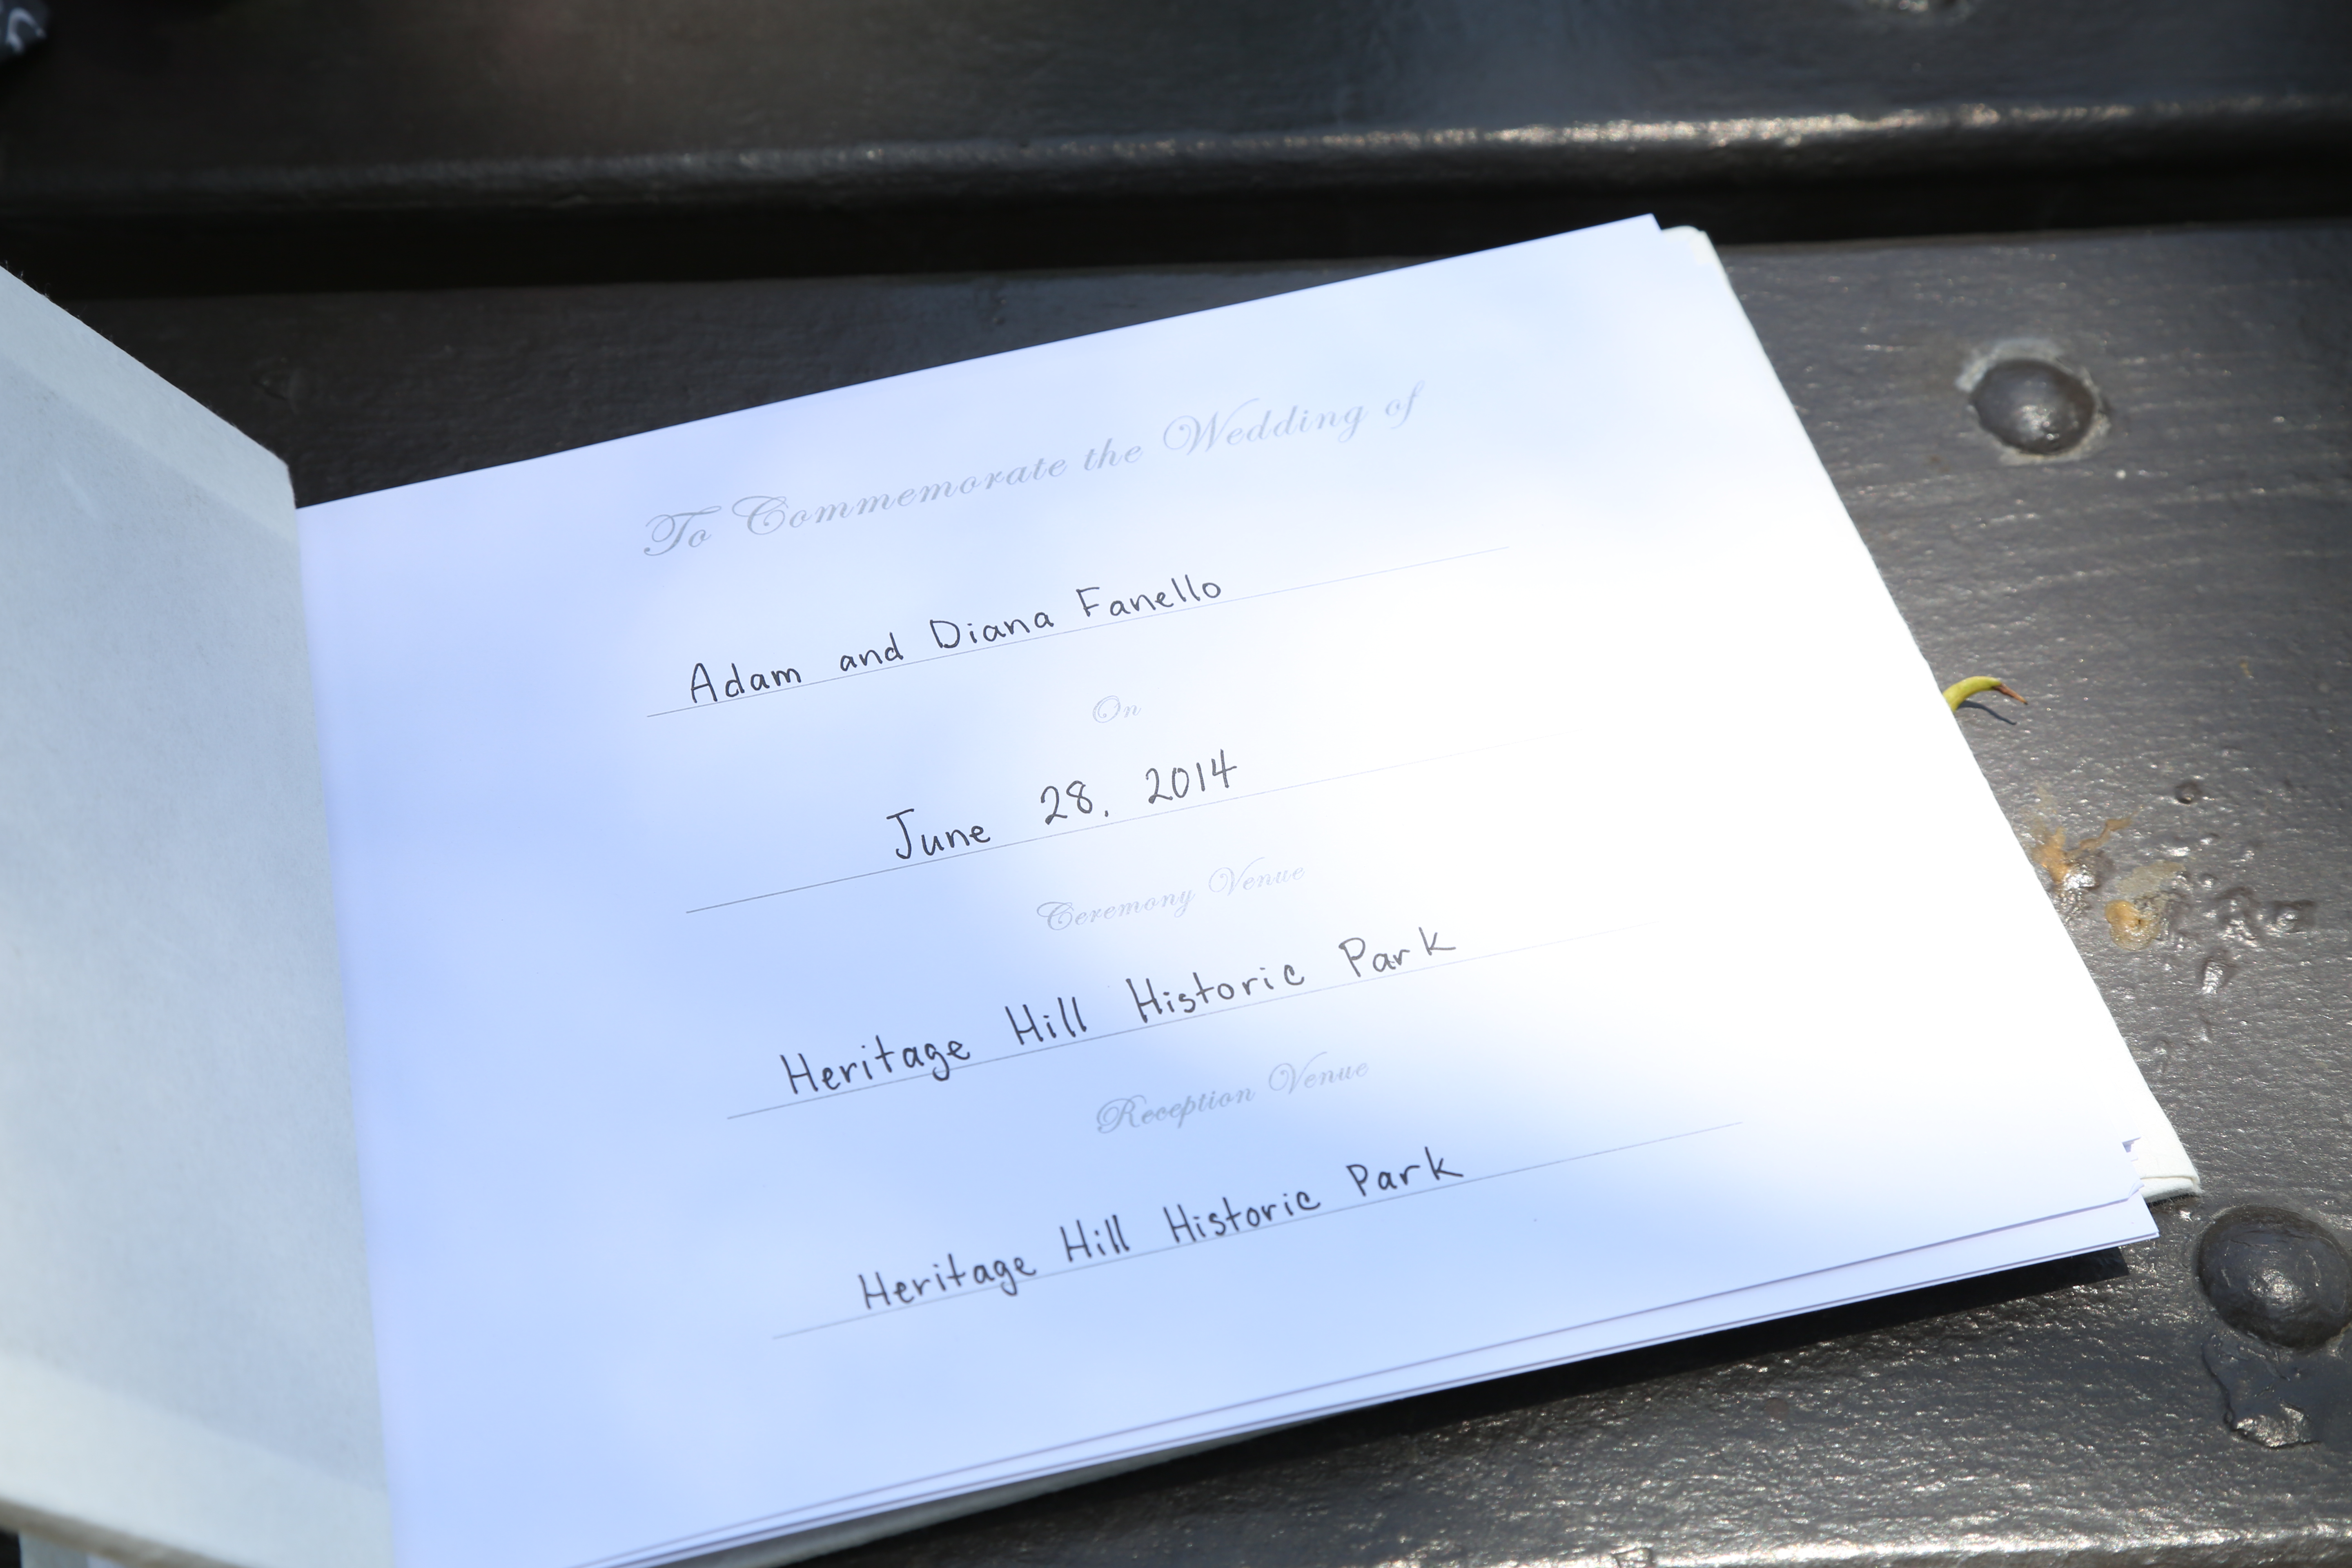 To Commemorate the Wedding of
Adam and Diana Fanello
On
June 28, 2014
Ceremony Venue
Heritage Hill Historic Park
Reception Venue
Heritage Hill Historic Park